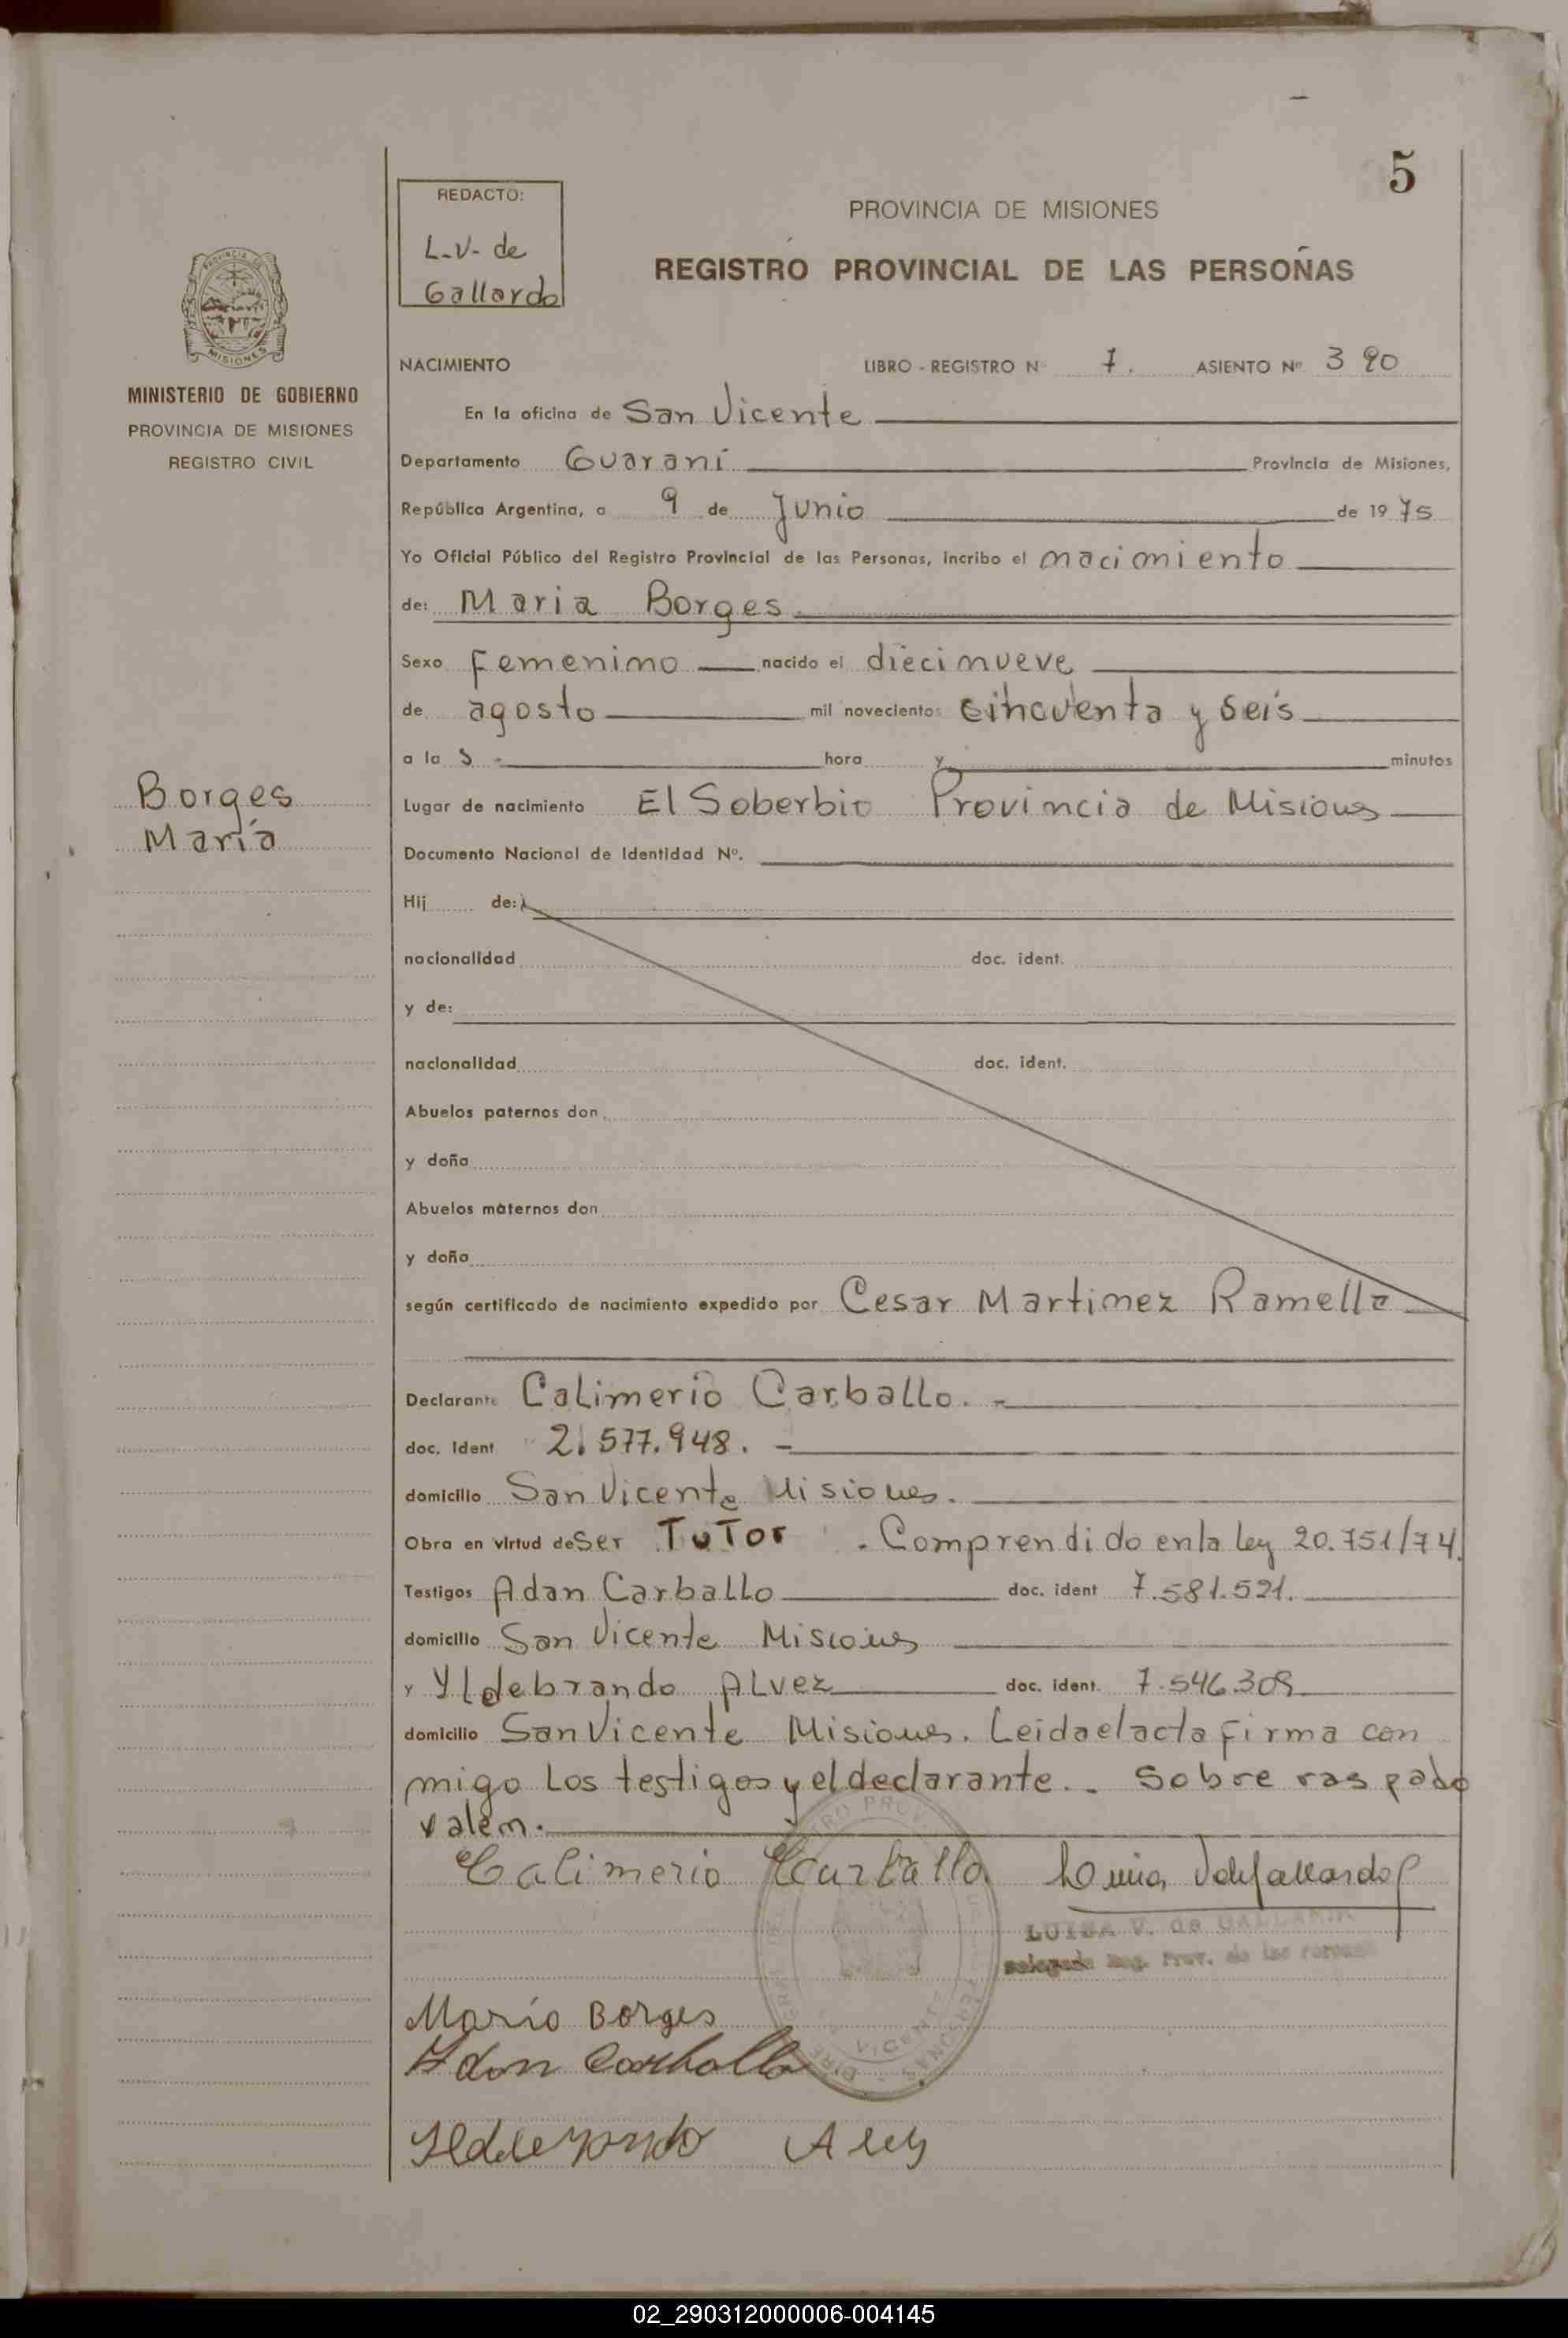 5
REDACTO:
L-V- de
Gallardo
PROVINCIA DE MISIONES
REGISTRO PROVINCIAL DE LAS PERSONAS
PROVINCIA DE MISIONES
MINISTERIO DE GOBIERNO
PROVINCIA DE MISIONES
REGISTRO CIVIL
NACIMIENTO LIBRO - REGISTRO Nº 7. ASIENTO Nº 390
En la oficina de San Vicente
Departamento Guaraní Provincia de Misiones,
República Argentina, a 9 de Junio de 1975
Yo Oficial Público del Registro Provincial de las Personas, incribo el nacimiento
de: Maria Borges
Sexo Femenino nacido el diecinueve
de agosto mil novecientos cincuenta y seis
a la s - hora y minutos
Borges
María
Lugar de nacimiento El Soberbio Provincia de Misiones
Documento Nacional de Identidad Nº.
Hij de:
nacionalidad doc. ident.
y de:
nacionalidad doc. ident.
Abuelos paternos don
y doña
Abuelos maternos don
y doña
según certificado de nacimiento expedido por Cesar Martinez Ramella
Declarante Calimerio Carballo. -
doc. ident 2.577.948. -
domicilio San Vicente Misiones.
Obra en virtud de Ser TuTor . Comprendido en la ley 20.751/74.
Testigos Adan Carballo doc. ident 7.581.521.
domicilio San Vicente Misiones
y Yldebrando Alvez doc. ident. 7.546.309
domicilio San Vicente Misiones. Leida el acta firma con
migo Los testigos y el declarante.. Sobre raspado
valen.
Calimerio Carballo
LUISA V. de GALLARDO
Delegada Reg. Prov. de las Personas
Maria Borges
Adan Carballo
02_290312000006-004145